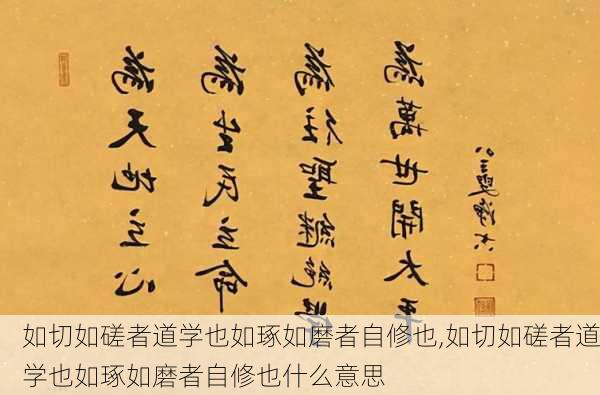 為天地立心
為生民立命
為往聖繼絕學
為萬世開太平
如切如磋者道学也如琢如磨者自修也,如切如磋者道
学也如琢如磨者自修也什么意思